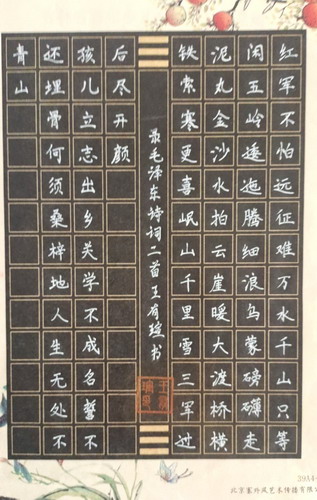 红军不怕远征难万水千山只等
闲五岭逶迤腾细浪乌蒙磅礴走
泥丸金沙水拍云崖暖大渡桥横
铁索寒更喜岷山千里雪三军过
录毛泽东诗词二首王有书
后尽开颜
孩儿立志出乡关学不成名誓不
还埋骨何须桑梓地人生无处不
青山
2014-
北京塞外风艺术传播有限